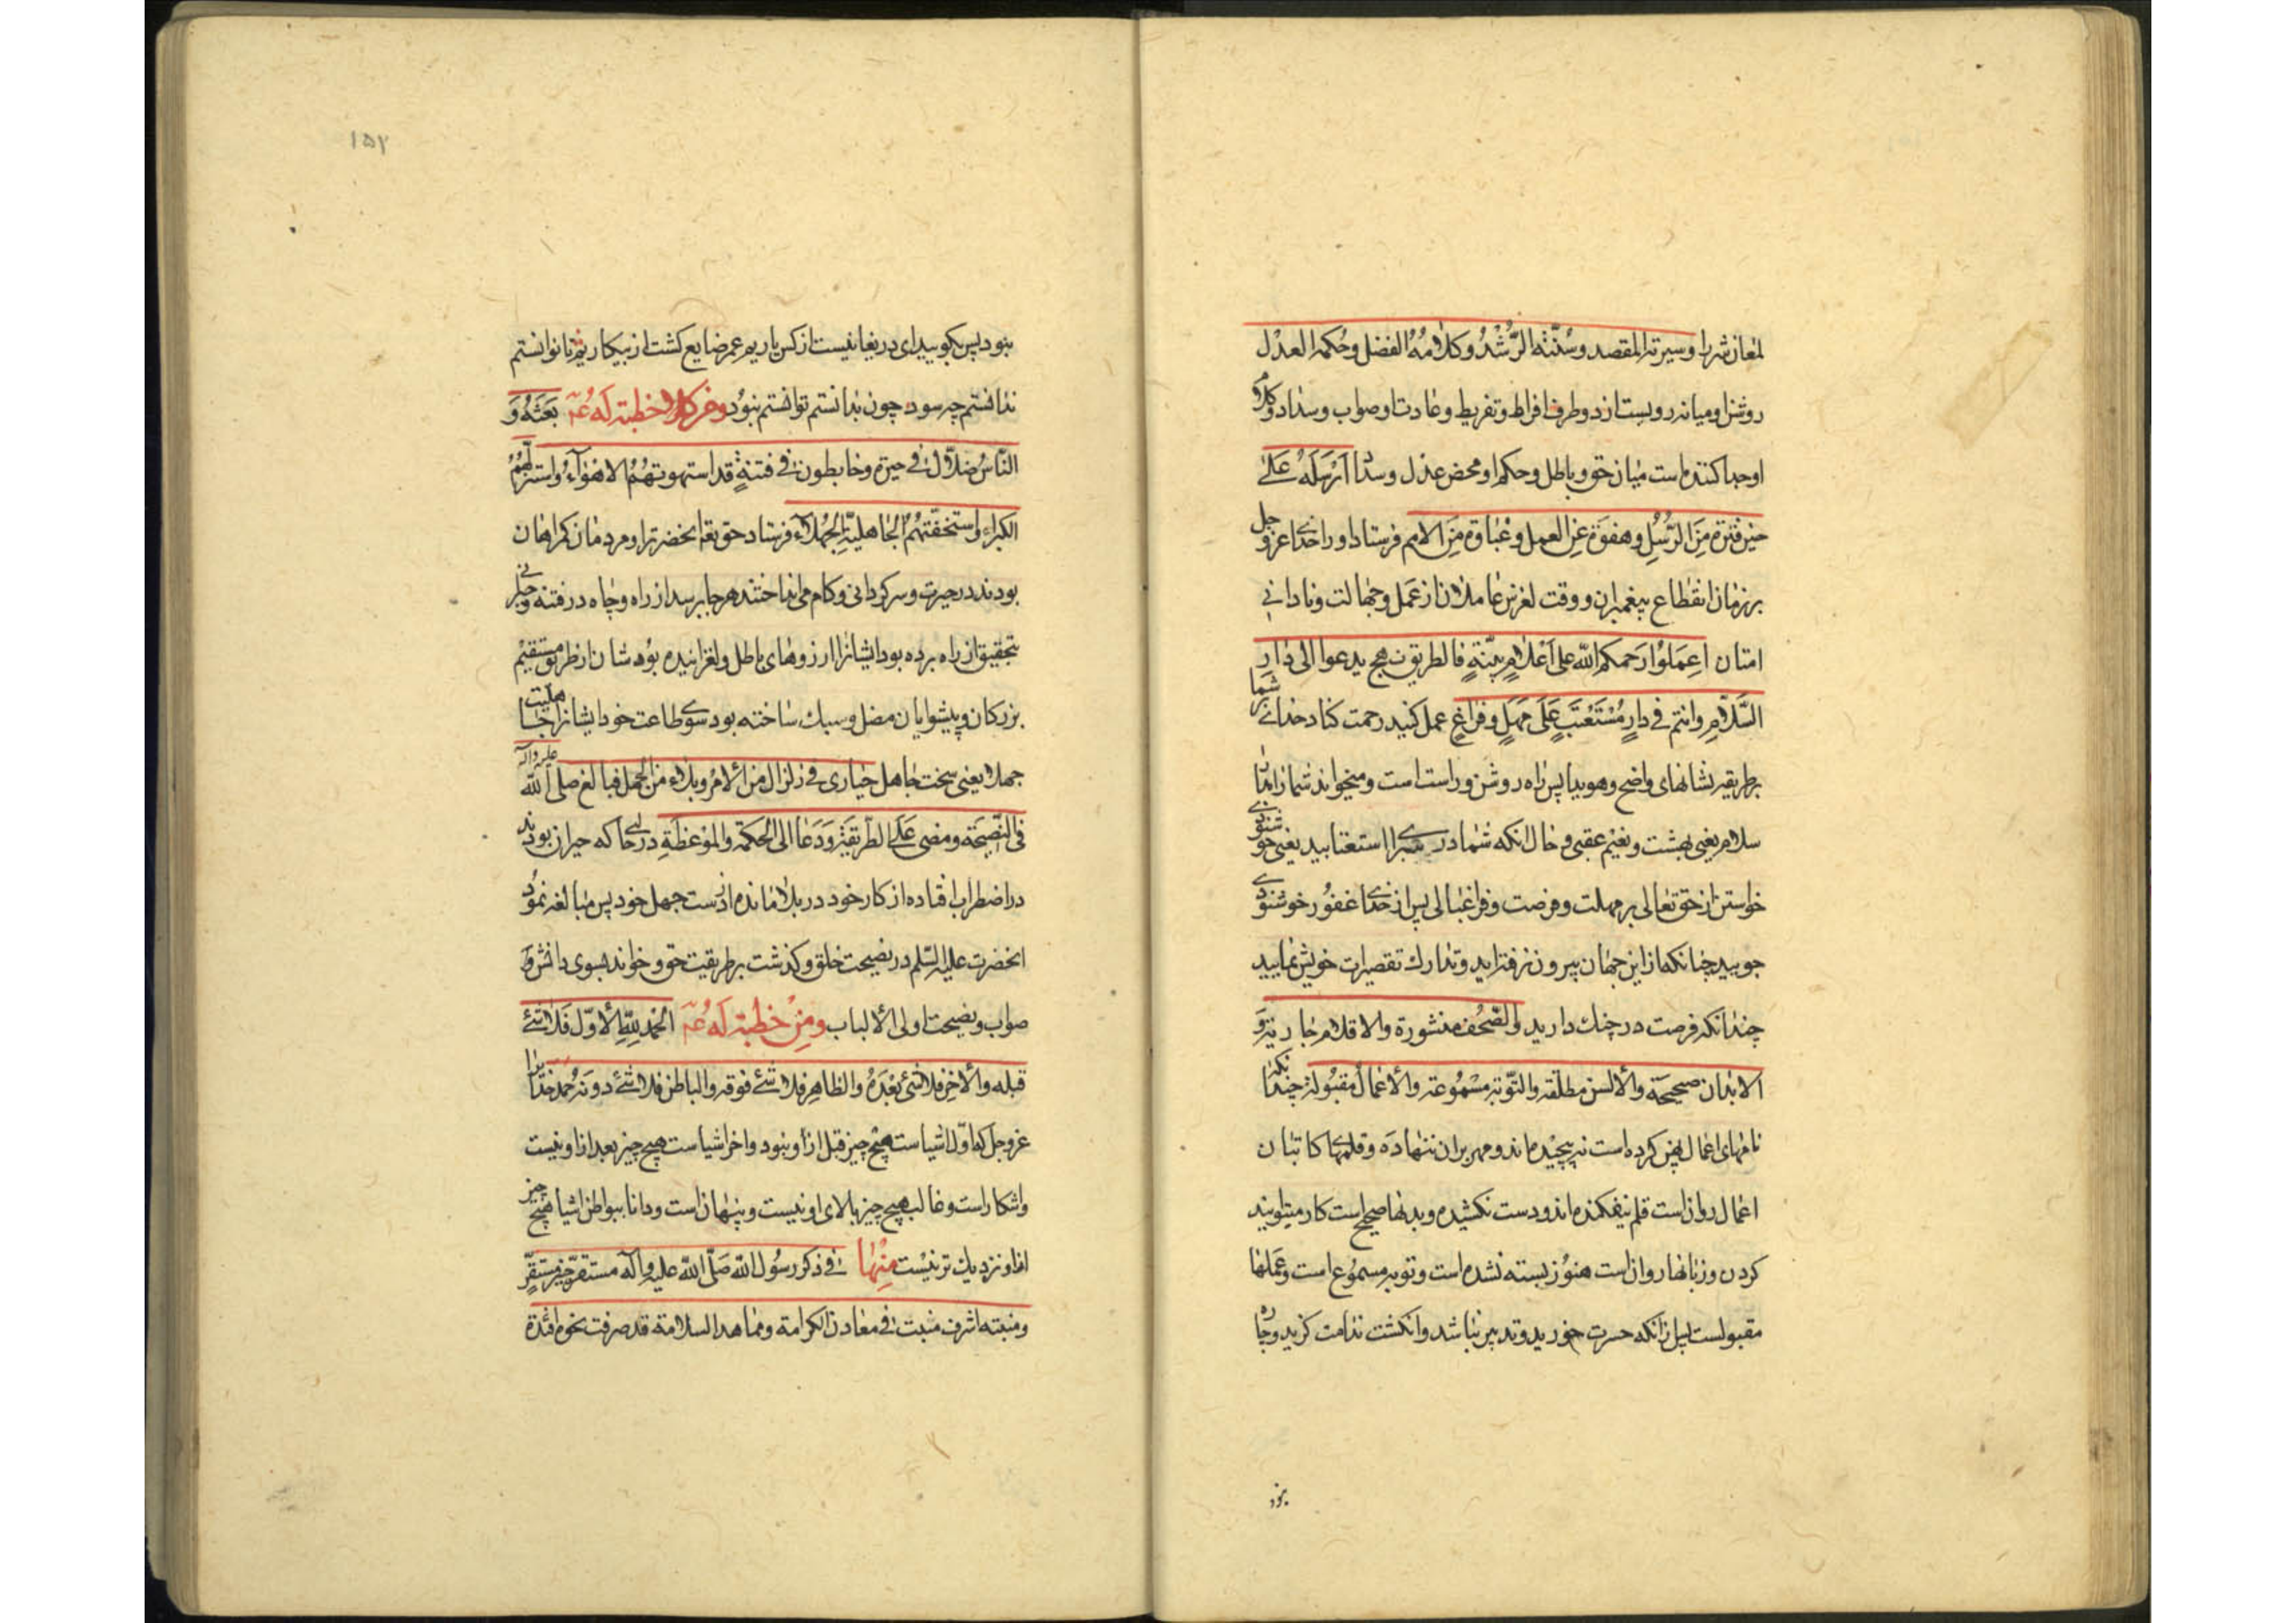 لمعان شررا وسیرته المقصد وسُنَّته الرُّشْدُ وکلامُهُ الفضل وحُکمه العدْل
روشن او میانه رویست از دو طرف افراط وتفریط وعادت او صواب وسداد وکلام
او جدا کننده است میان حق وباطل وحکم او محض عدل وسداد اَرْسَلَهُ عَلیٰ
حین فترة مِنَ الرُّسُلِ وهفوة عن العمل وغَباوة مِنَ الامم فرستاد او را خدای عز وجل
بر زمان انقطاع پیغمبران ووقت لغزش عاملان از عمل وجهالت ونادانی
امتان اِعمَلوُا رَحمکم الله علی اَعْلامٍ بیّنةٍ فالطریق نهج یدعوا الی دارِ
السَّلامِ وانتم فی دارِ مُسْتَعْتَبٍ عَلیٰ مَهَلٍ وفراغٍ عمل کنید رحمت کناد خدای بر شما
بر طریقه نشانهای واضح وهویدا پس راه روشن وراست است ومیخواند شما را بدار
سلام یعنی بهشت ونعیم عقبی وحال آنکه شما در سرای استعتابید یعنی خوشنودی
خواستن از حق تعالی بر مهلت وفرصت وفراغبالی پس از خدای غفور خوشنودی
جویید چنانکه از این جهان بیرون نرفته‌اید وتدارک تقصیرات خویش نمایید
چندانکه فرصت در چنک دارید والصُّحُف منشورة والاقلام جاریة وَ
الابدان صحیحة والالسن مطلقه والتّوبة مسْموُعة والاعمال مقبُولة چندانکه
نامهای اعمال پهن کرده است نه پیچیده‌اند ومهر بر ان ننهاده وقلمهای کاتبان
اعمال روان است قلم نیفکنده‌اند ودست نکشیده وبدنها صحیح است کار میتوانید
کردن وزبانها روان است هنوُز بسته نشده است وتوبه مسموُع است وعملها
مقبولست پس از آنکه حسرت خورید وتدبیر نباشد وانکشت ندامت کزید وچاره
نبود
۱۵۲
نبود پس بکویید ای دریغا نیست از کس یاریم عمر ضایع کشت از بیکاریم تا توانستم
ندانستم چه سود چون بدانستم توانستم نبوُد ومن کلام خطبة لَهُ عۤ بَعَثهُ وَ
النّاسُ ضلاّل فی حیرة وخابطون فی فتنةٍ قد استهوتهُمُ الاهْوَآءُ واستزلَّهُمُ
الکبراء واستخفّتهُمُ الجاهلیّة الجُهَلآء فرستاد حق تعٰ انحضرت را ومردمان کمراهان
بودند در حیرت وسرکردانی وکام می انداختند هر جا برسد از راه وچاه در فتنه وحیرانی
بتحقیق از راه برده بود ایشانرا ارزوهای باطل ولغزانیده بوُد شان از طریق مستقیْم
بزرکان وپیشوایان مضل وسبک ساخته بود سوی طاعت خود ایشانرا جاهلیّت
جهلا یعنی سخت جاهل حَیاری فی زلزال من الامْر وبلاء من الجهل فبالغ صلی الله علیه وآله
فی النّصیحَة ومضی عَلَی الطّریقَة وَدَعَا الی الحکمَة والموْعظَة در حالی که حیران بودند
در اضطراب افتاده از کار خود در بلا مانده از دست جهل خود پس مبالغه نموُد
انحضرت علیه السّلم در نصیحت خلق وکذشت بر طریقیت حق وخواند بسوی دانش و
صواب ونصیحت اولی الالباب ومِنْ خطبة لَهُ عۤ الحمْد لِلّٰهِ الاوّل فَلا شئ
قبله والاخِر فلا شئ بعْدَهُ والظاهِر فلا شئ فوقه والباطن فلا شئ دونَهُ حمد خدایرا
عزوجل که اوّل اشیاست هیچ چیز قبل از او نبود واخر اشیاست هیچ چیز بعد از او نیست
واشکار است وغالب هیچ چیز بالای او نیست وپنهان است ودانا ببواطن اشیا هیچ چیز
از او نزدیک تر نیْست مِنْها فی ذکر رسُول الله صَلّی الله علیه وآله مستقرّه خیر مستقرٍّ
ومنبته اشرف منبت فی معادن الکرامة ومماهد السلامة قد صرفت نحوه افئدة